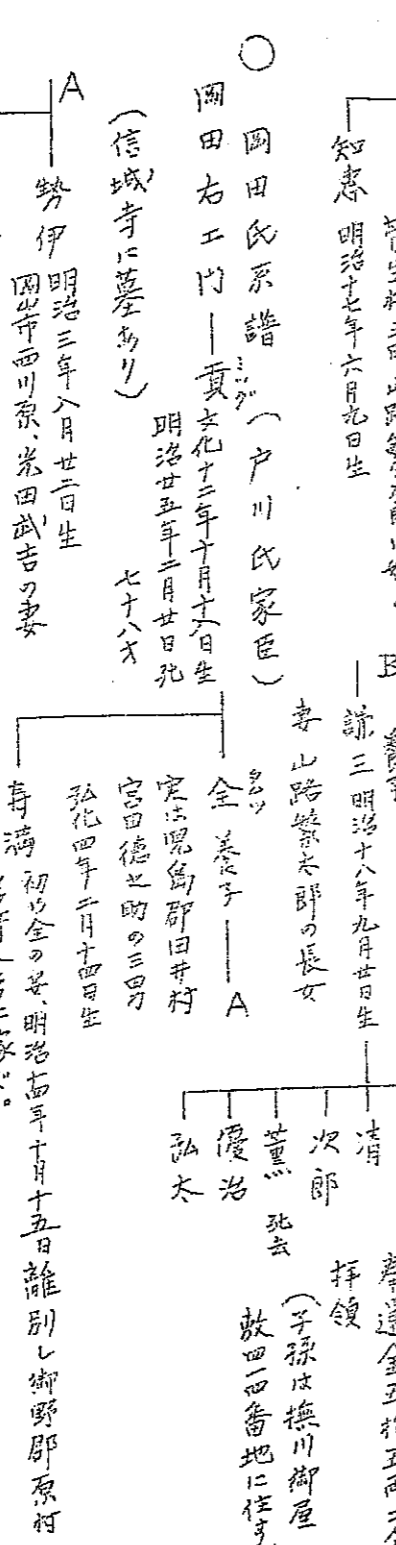 知恵 明治十七年六月九日生
B
諒三 明治十八年九月廿日生
妻 山路繁太郎の長女
清
次郎
薫 死去
優治
弘太
拝領
(子孫は撫川御屋
敷四一四番地に住す
○ 岡田氏系譜(戸川氏家臣)
岡田右エ門
(信城寺に墓あり)
貢 ミツグ 文化十二年十月十八日生
明治廿五年二月廿日死
七十八才
全 タモツ 養子 A
実は児島郡田井村
宮田徳之助の三男
弘化四年二月十四日生
寿満 初め全の妻、明治十四年十月十五日離別し御野郡原村
A
勢伊 明治三年八月廿二日生
岡山市西川原、光田武吉の妻